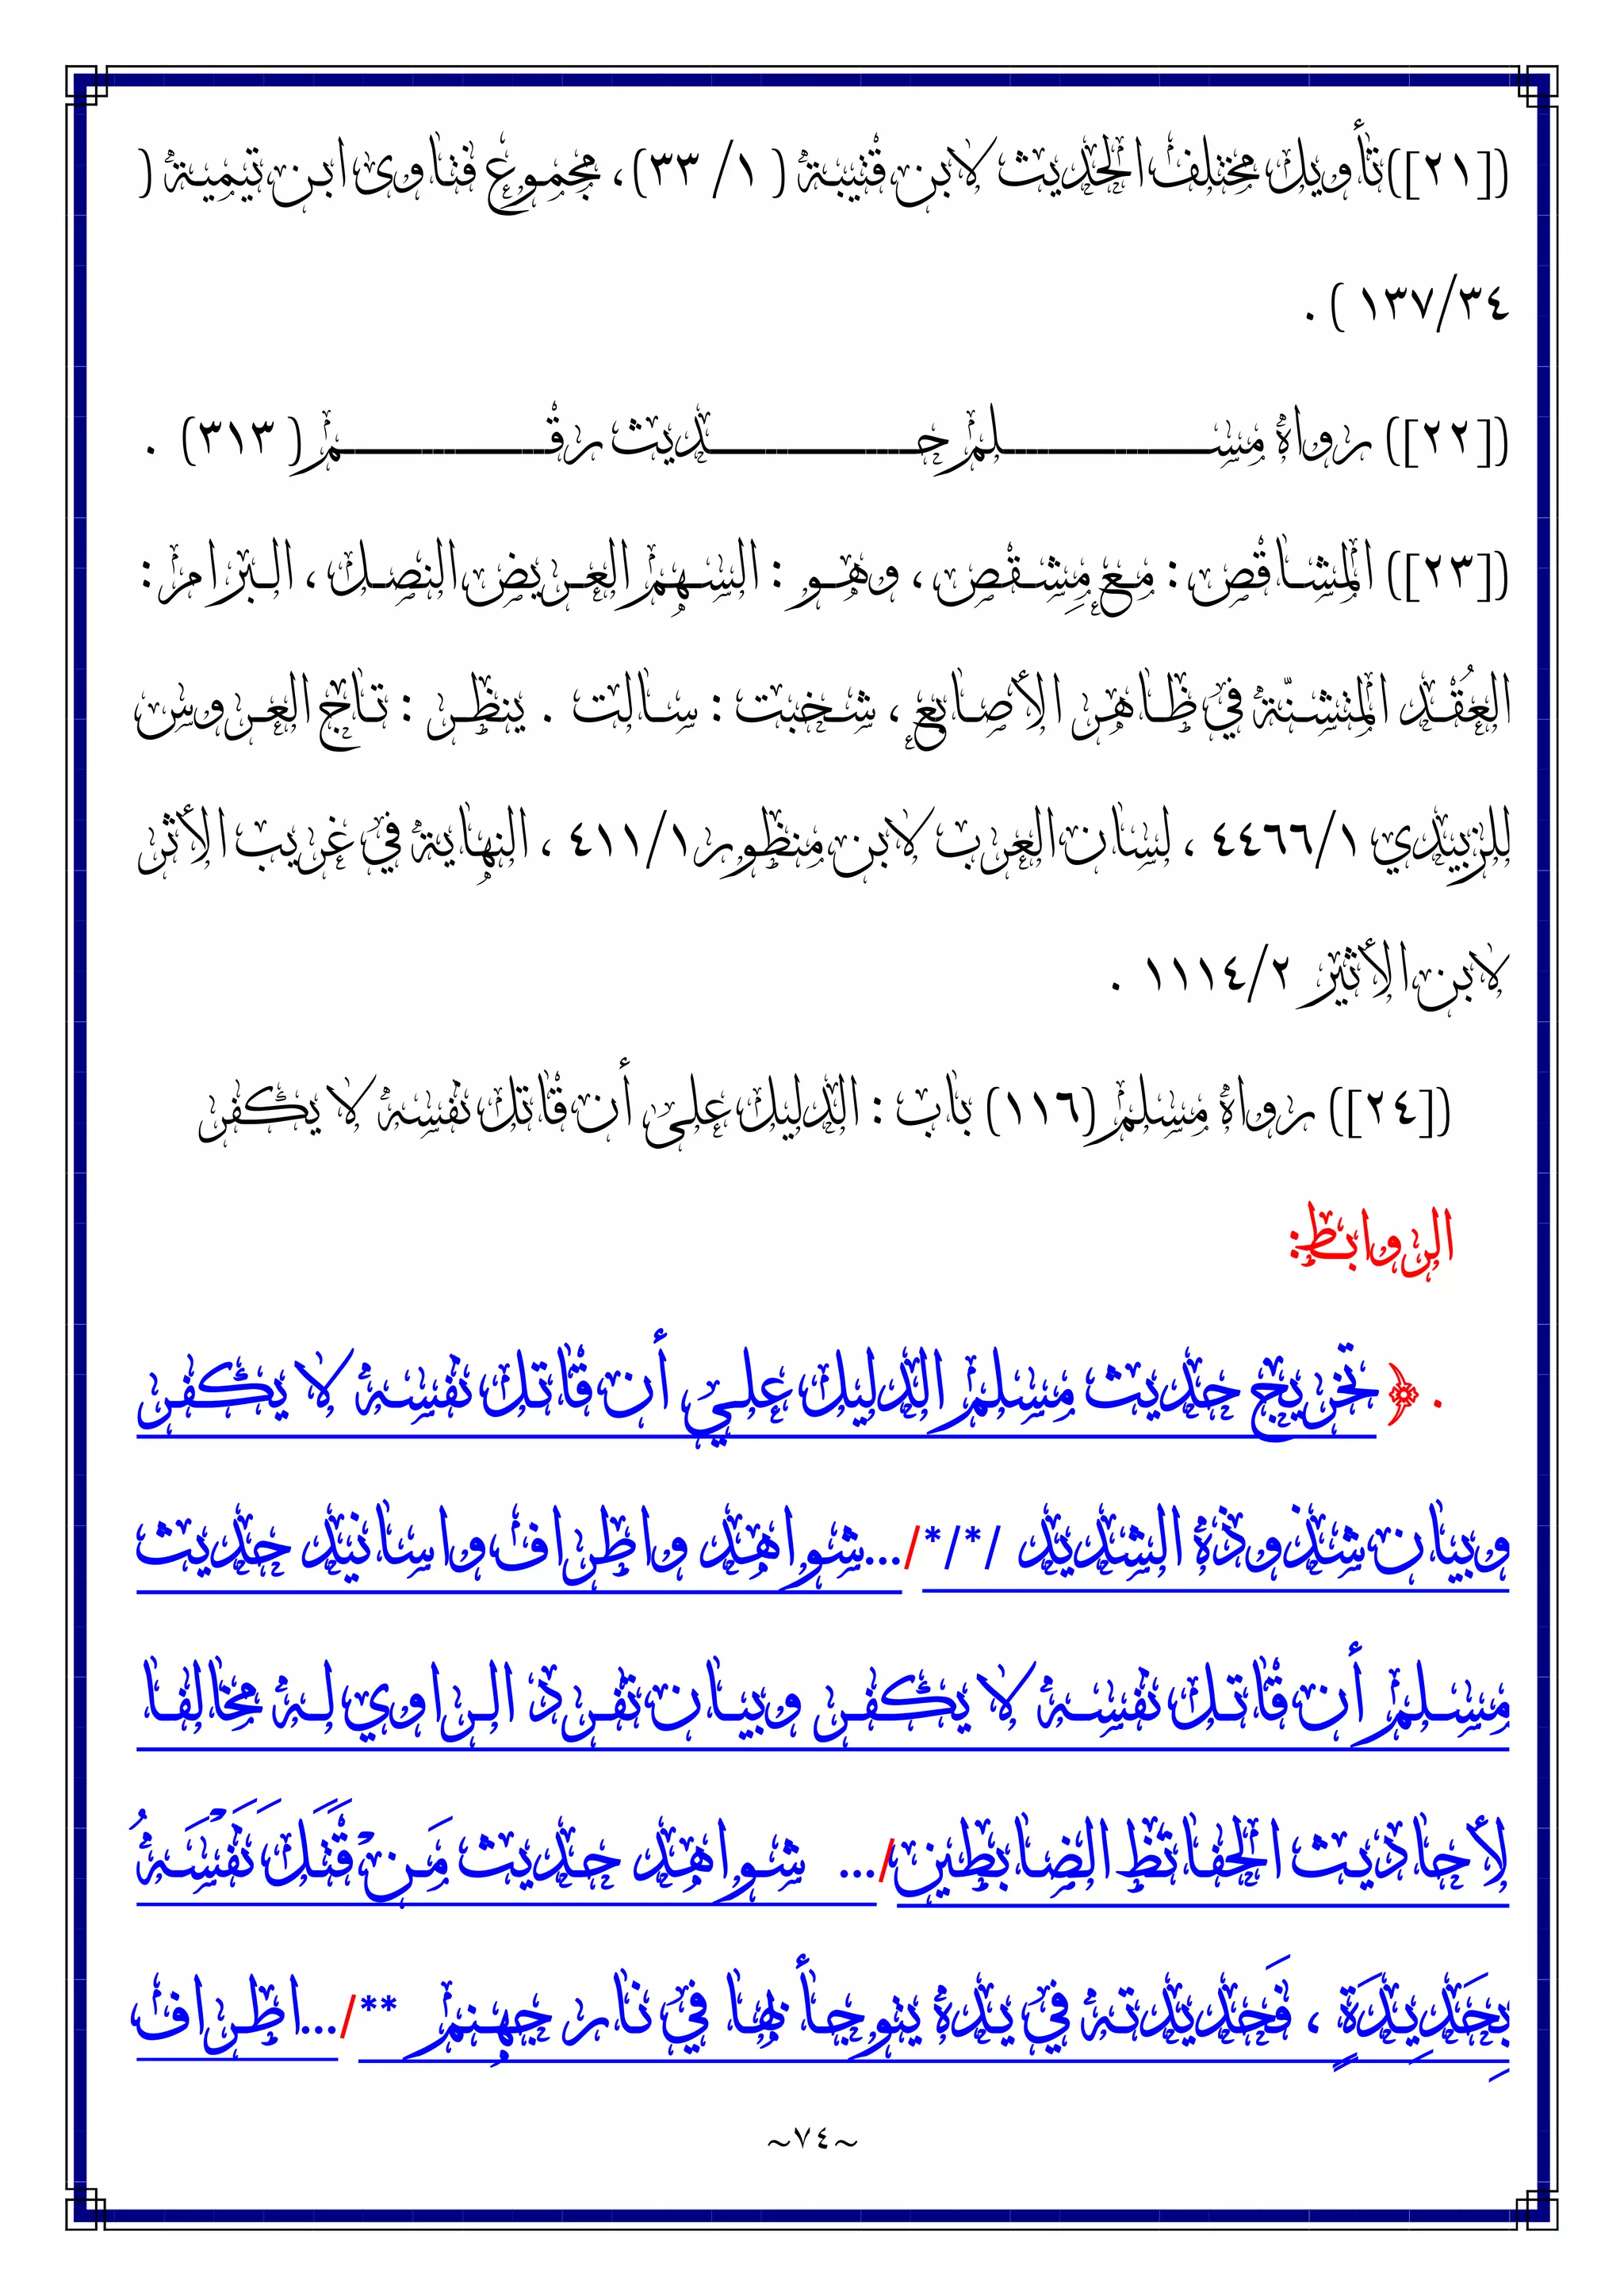 ([٢١]) تأويل مختلف الحديث لابن قتيبة ( ١/ ٣٣) ، مجموع فتاوى ابن تيمية (
٣٤/ ١٣٧ ) .
([٢٢]) رواه مســـلم حـــديث رقـــم ( ٣١٣) .
([٢٣]) المشاقص : مع مِشقص ، وهو : السهم العريض النصل ، البرام :
العُقد المتشنّة في ظاهر الأصابع ، شخبت : سالت . ينظر : تاج العروس
للزبيدي ١/ ٤٤٦٦ ، لسان العرب لابن منظور١/ ٤١١ ، النهاية في غريب الأثر
لابن الأثير ٢/ ١١١٤ .
([٢٤]) رواه مسلم (١١٦) باب : الدليل على أن قاتل نفسه لا يكفر
الروابط:
. ﴿ تخريج حديث مسلم الدليل علي أن قاتل نفسه لا يكفر
وبيان شذوذه الشديد /*/*/...شواهد واطراف واسانيد حديث
مسلم أن قاتل نفسه لا يكفر وبيان تفرد الراوي له مخالفا
لأحاديث الحفاتظ الضابطين/... شواهد حديث مَن قَتَلَ نَفْسَهُ
بِحَدِيدَةٍ ، فَحديدته في يده يتوجأ بها في نار جهنم **/...اطراف
~٧٤~